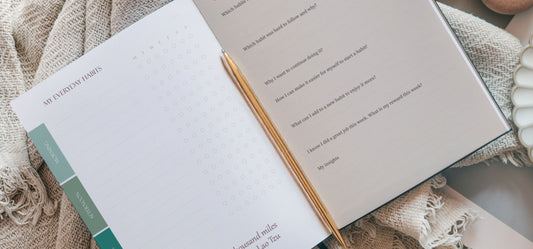 MY EVERYDAY HABITS
M T W T F S S
thousand miles
Lao Tzu
Which habit was hard to follow and why?
Why I want to continue doing it?
How I can make it easier for myself to start a habit?
What can I add to a new habit to enjoy it more?
I know I did a great job this week. What is my reward this week?
My insights